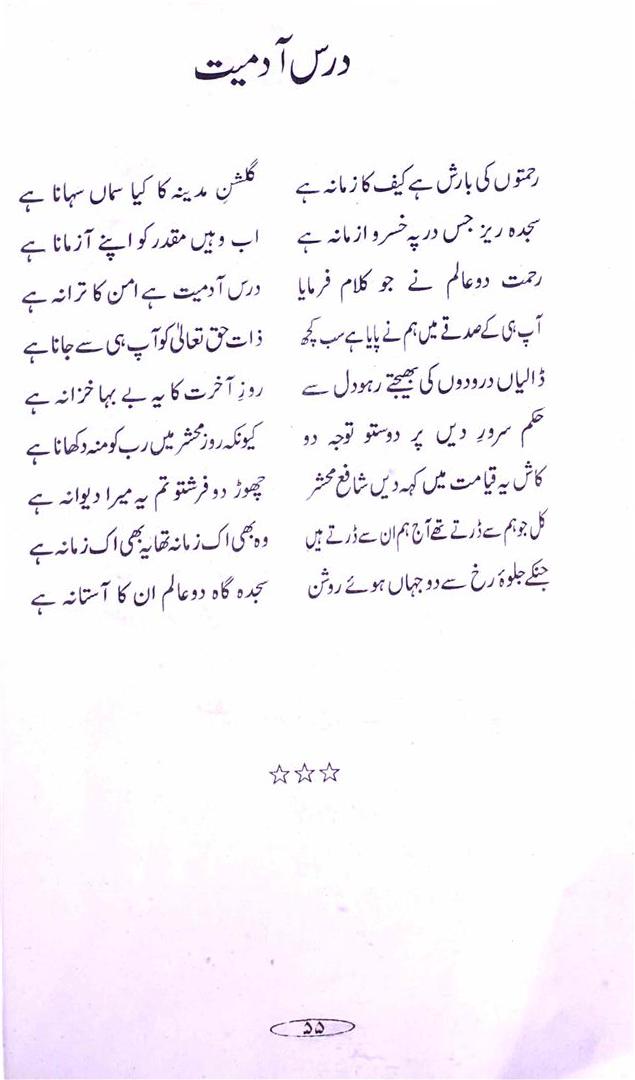 درس آدمیت
رحمتوں کی بارش ہے کیف کا زمانہ ہے گلشنِ مدینہ کا کیا سماں سہانا ہے
سجدہ ریز جس در پہ خسرو ازمانہ ہے اب وہیں مقدر کو اپنے آزمانا ہے
رحمت دوعالم نے جو کلام فرمایا درس آدمیت ہے امن کا ترانہ ہے
آپ ہی کے صدقے میں ہم نے پایا ہے سب کچھ ذات حق تعالیٰ کو آپ ہی سے جانا ہے
ڈالیاں درودوں کی بھیجتے رہو دل سے روزِ آخرت کا یہ بے بہا خزانہ ہے
حکم سرورِ دیں پر دوستو توجہ دو کیونکہ روز محشر میں رب کو منہ دکھانا ہے
کاش یہ قیامت میں کہہ دیں شافع محشر چھوڑ دو فرشتو تم یہ میرا دیوانہ ہے
کل جو ہم سے ڈرتے تھے آج ہم ان سے ڈرتے ہیں وہ بھی اک زمانہ تھا یہ بھی اک زمانہ ہے
جنکے جلوۂ رخ سے دو جہاں ہوئے روشن سجدہ گاہ دوعالم ان کا آستانہ ہے
☆☆☆
۵۵